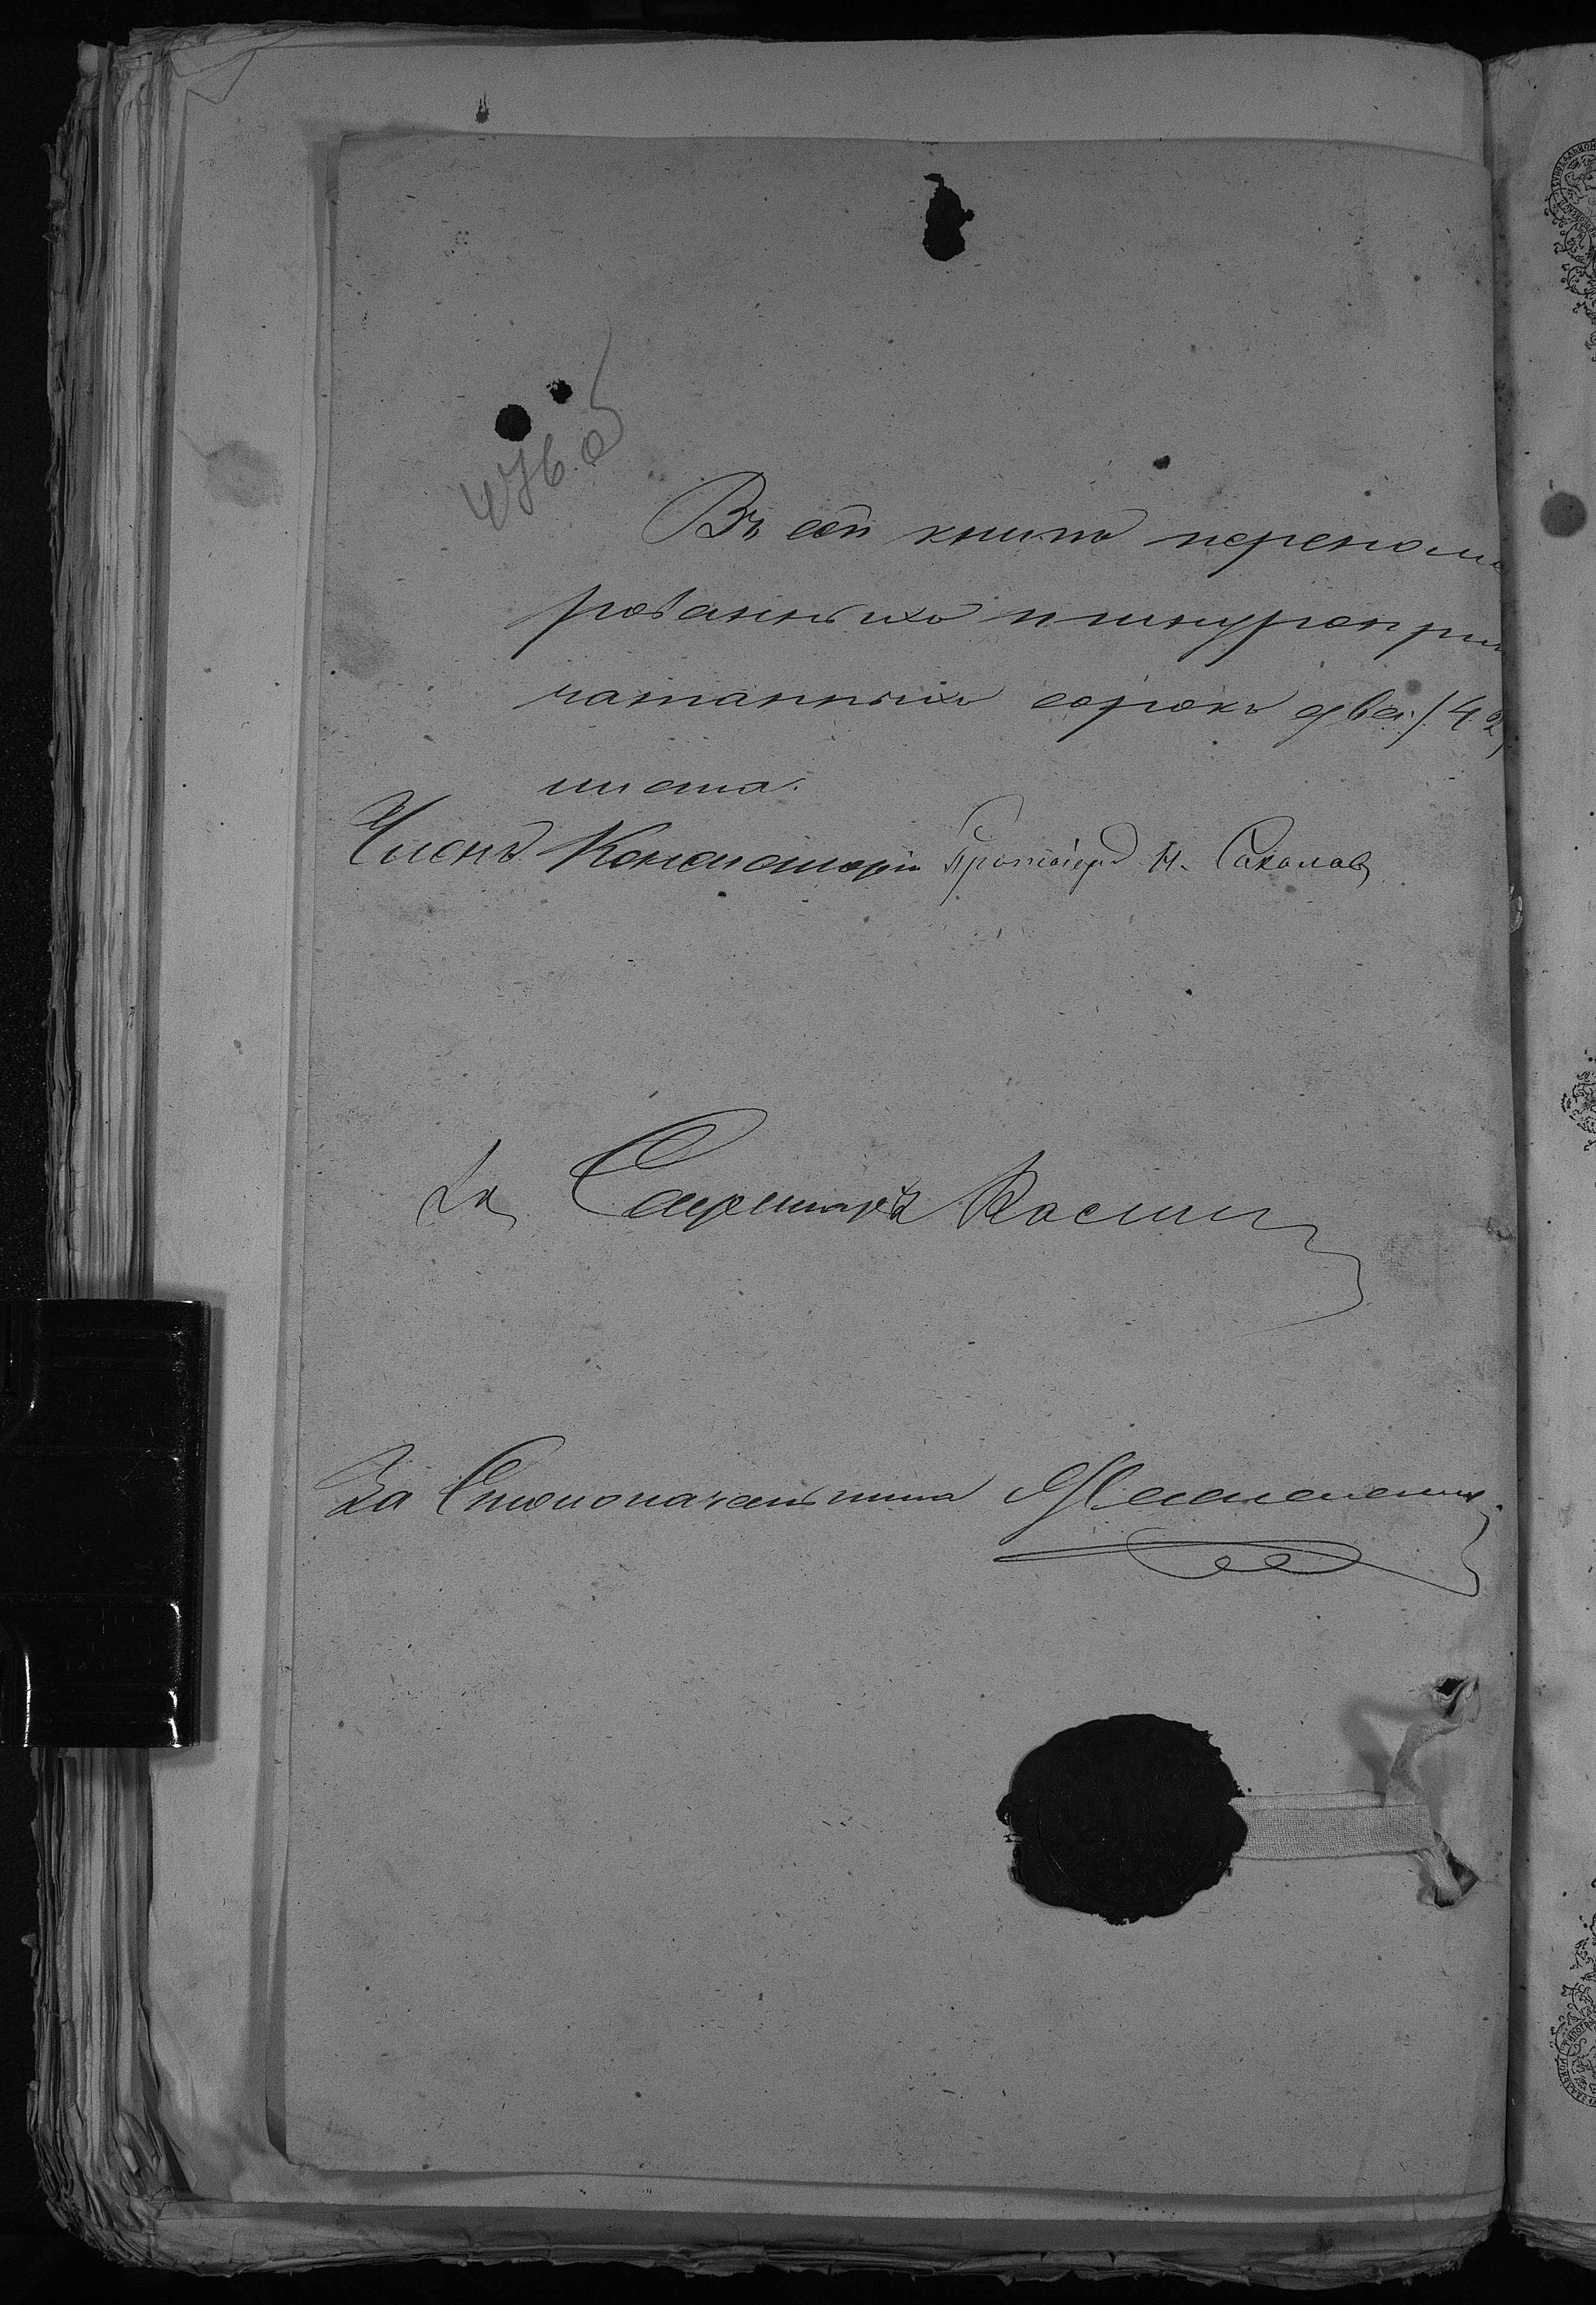 476 об
Въ сей книге перенуме
рованныхъ и шнуропри
чатанныхъ сорокъ два /42/
листа.
Членъ Консисторіи Протоіерей Н. Соколовъ
За Секретаря
За Столоначальника